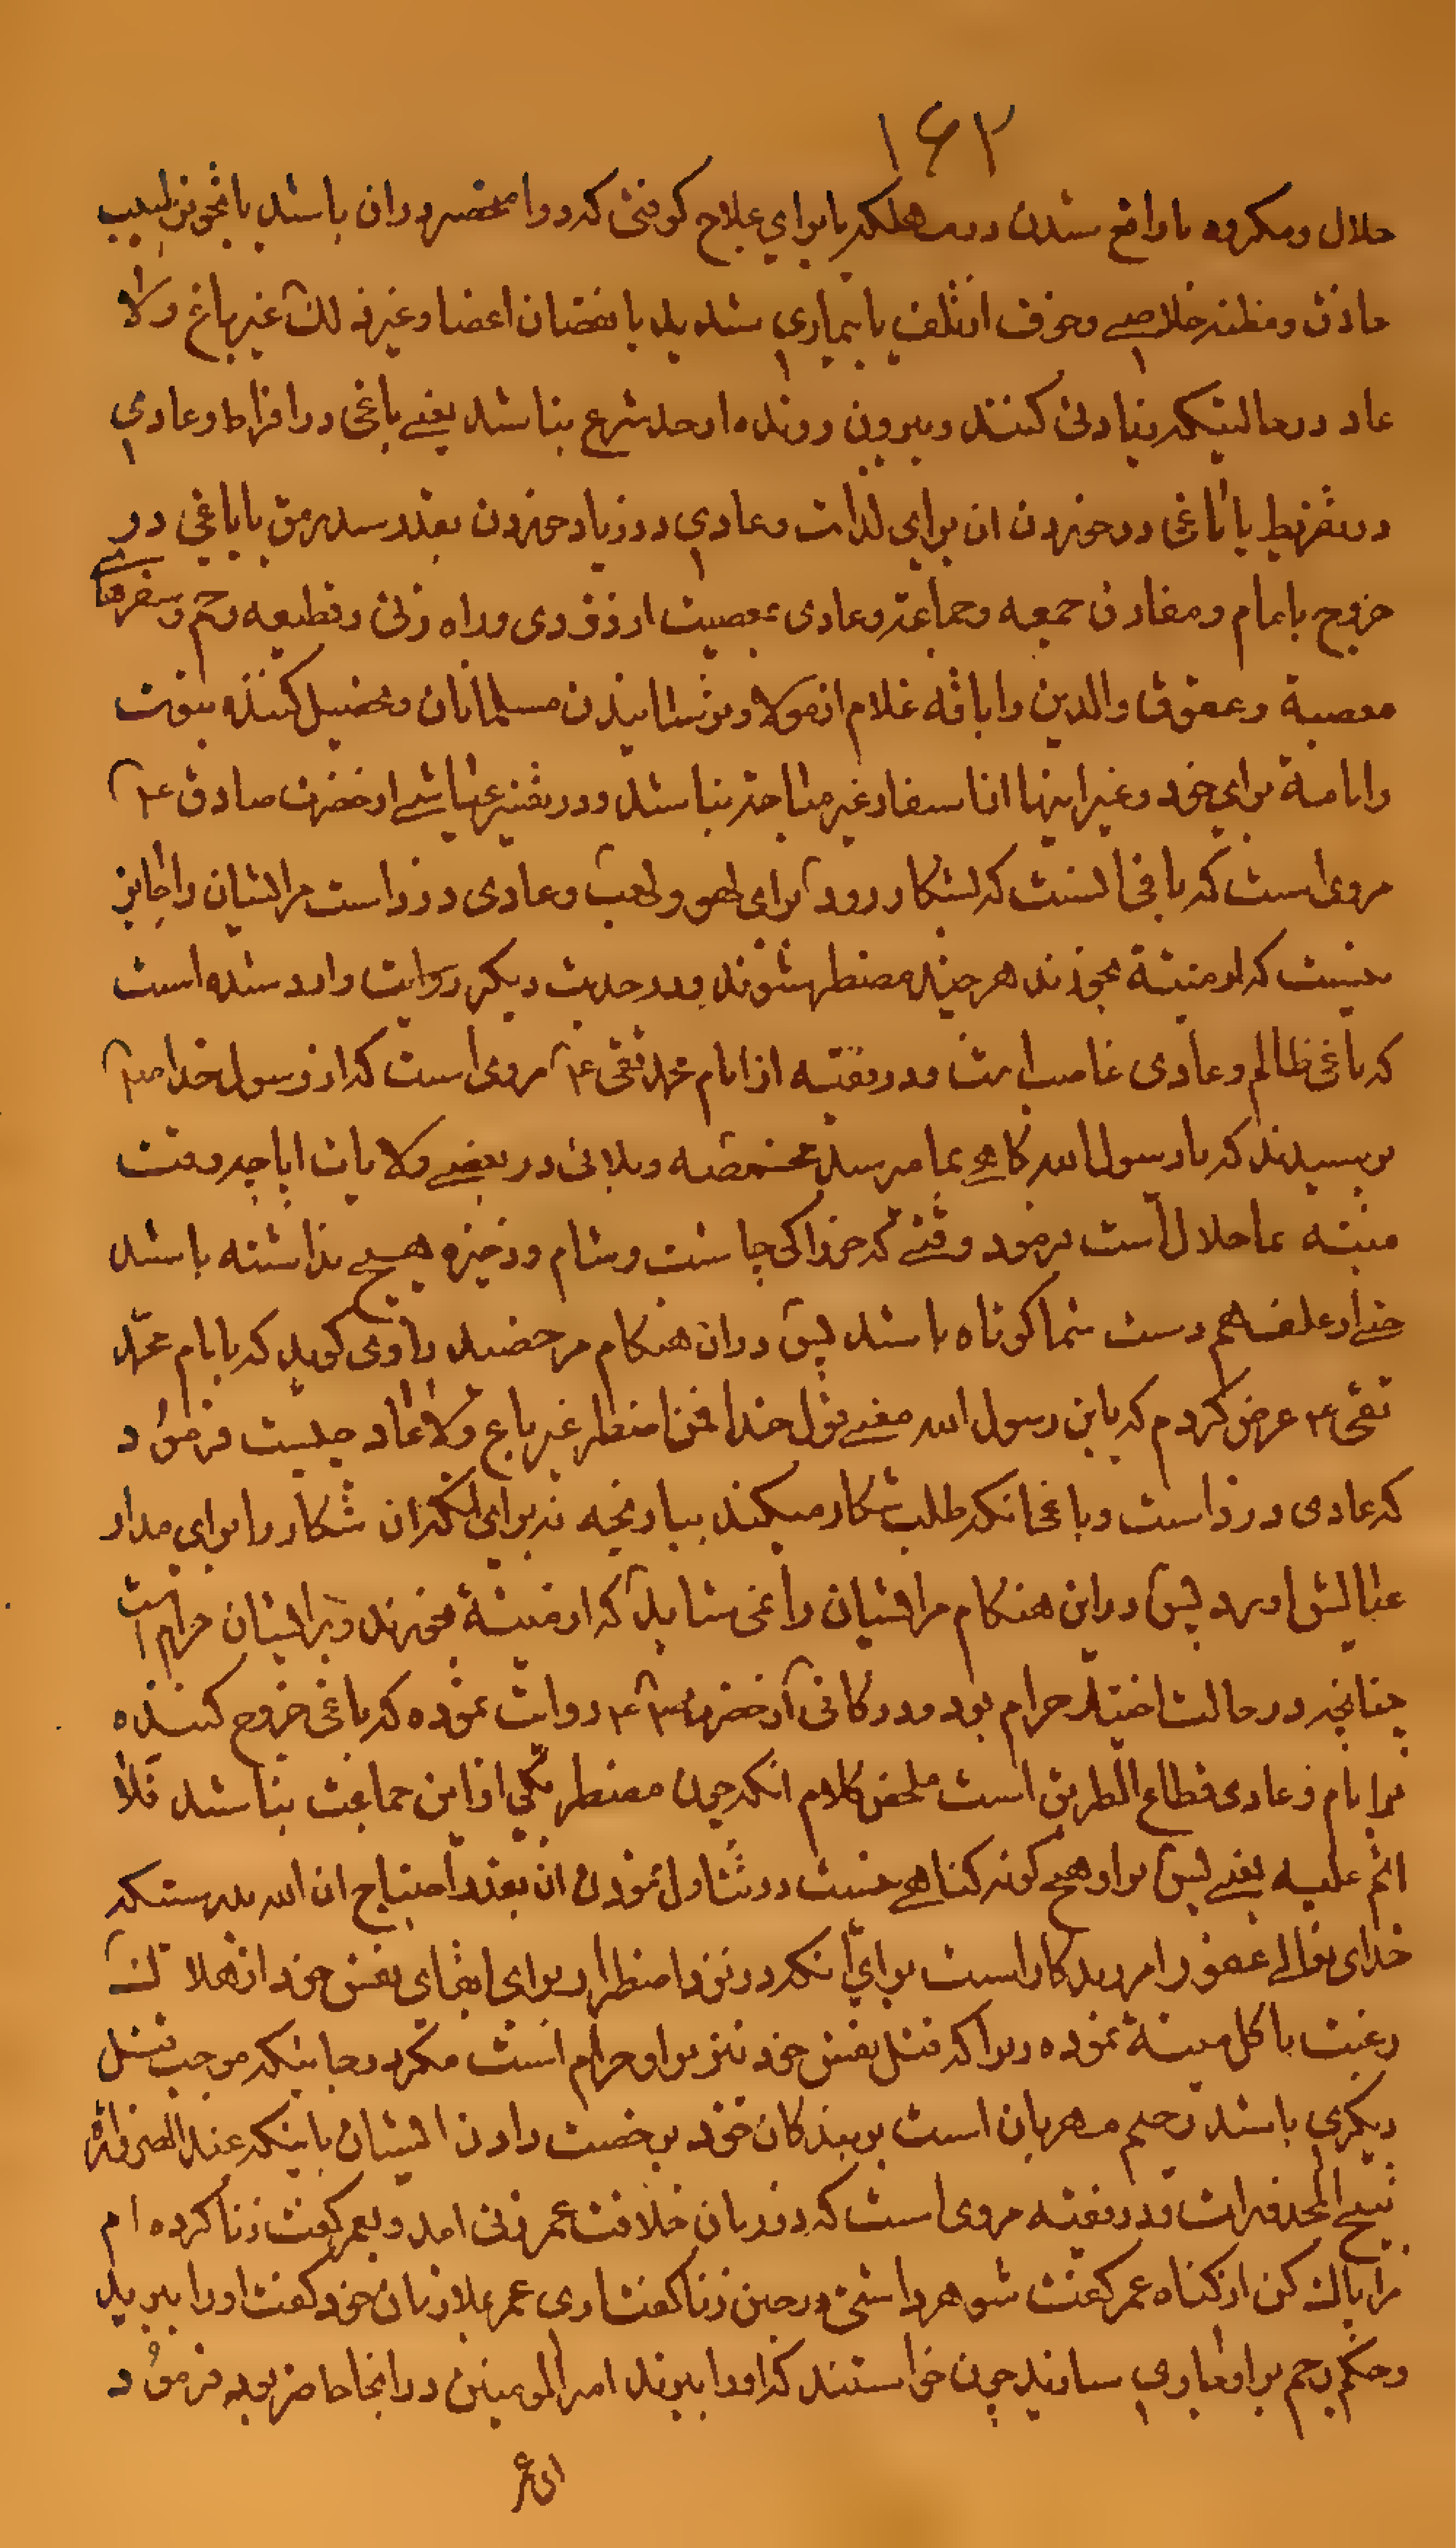 ۱۶۲
حلال و مکروه یا واقع شدن در مهلکه یا برای علاج کوفتی که دوا منحصر در ان باشد با تجویز طبیب
حاذق و مظنه خلاصے و خوف از تلف یا بیماری شدید یا نقصان اعضا و غیر ذلک غیر باغ ولا
عاد در حالتیکه زیادتی کنند و بیرون رونده از حد شرع نباشد یعنے باغی در افراط و عادی
در تفریط یا باغی در خوردن ان برای لذات و عادی در زیاد خوردن بقدر سد رمق یا باغی در
خروج بامام و مفارق جمعه و جماعة و عادی بمعصیت از دزدی و راه زنی و قطیعه رحم و سفرهای
معصیة و عقوق والدین و اباقه غلام از مولا و ترسانیدن مسلمانان و تحصیل کننده بیوت
و امامة برای خود و غیر اینها از اسفار غیر مباحة نباشد و در تفسیر عیاشے از حضرت صادق ع
مروی است که باغی انست که بشکار رود برای لهو و لعب و عادی دزد است مر ایشان را جایز
نیست که از میتة بخورند هر چند مضطر شوند و در حدیث دیکر روایت وارد شده است
که باغی ظالم و عادی غاصب است و در فقیه از امام محمد تقی ع مروی است که از رسول خدا ص
پرسیدند که یا رسول الله کاهے بما میرسد مخمصه و بلائی در بعضے ولایات ایا چه وقت
میته بما حلال است فرمود وقتے که خوراکی چاشت و شام و ذخیره هیچے نداشته باشد
حتے از علف هم دست شما کوتاه باشد پس دران هنکام مرخصید راوی کوید که بامام محمد
تقی ع عرض کردم که یابن رسول الله معنے قول خدا فمن اضطر غیر باغ ولا عاد چیست فرمود
که عادی دزد است و باغی انکه طلب شکار میکند ببازیچه نه برای انکه ان شکار را برای مدار
عیالش اورد پس دراین هنکام مر ایشان را نمی شاید که از میتة بخورند و بر ایشان حرام است
چنانچه در حالت اختیار حرام بود و در کافی از حضرت ع روایت نموده که باغی خروج کننده
بر امام و عادی قطاع الطریق است ملخص کلام انکه چون مضطر یکی از این جماعت نباشد فلا
اثم علیه یعنے پس بر او هیچ کونه کناهے نیست در تناول نمودن ان بقدر احتیاج ان الله بدرستیکه
خدای تعالے غفور امرزیدکار است برای انکه در نزد اضطرار برای ابقای نفس خود از هلاکت
رغبت باکل میتة نموده زیرا که قتل نفس خود نیز بر او حرام است مکر در جائیکه موجب قتل
دیکری باشد رحیم مهربان است بر بندکان خود برخصت دادن ایشان باینکه عند الضرورة
تبیح المحذورات و در فقیه مروی است که در زمان خلافت عمر زنی امد و بعمر کفت زنا کرده ام
مرا پاک کن از کناه عمر کفت شوهر داشتی در حین زنا کفت اری عمر بملازمان خود کفت او را ببرید
و حکم رجم بر او جاری سازید چون خواستند که او را ببرند امیر المومنین در انجا حاضر بود فرمود
ای عمر